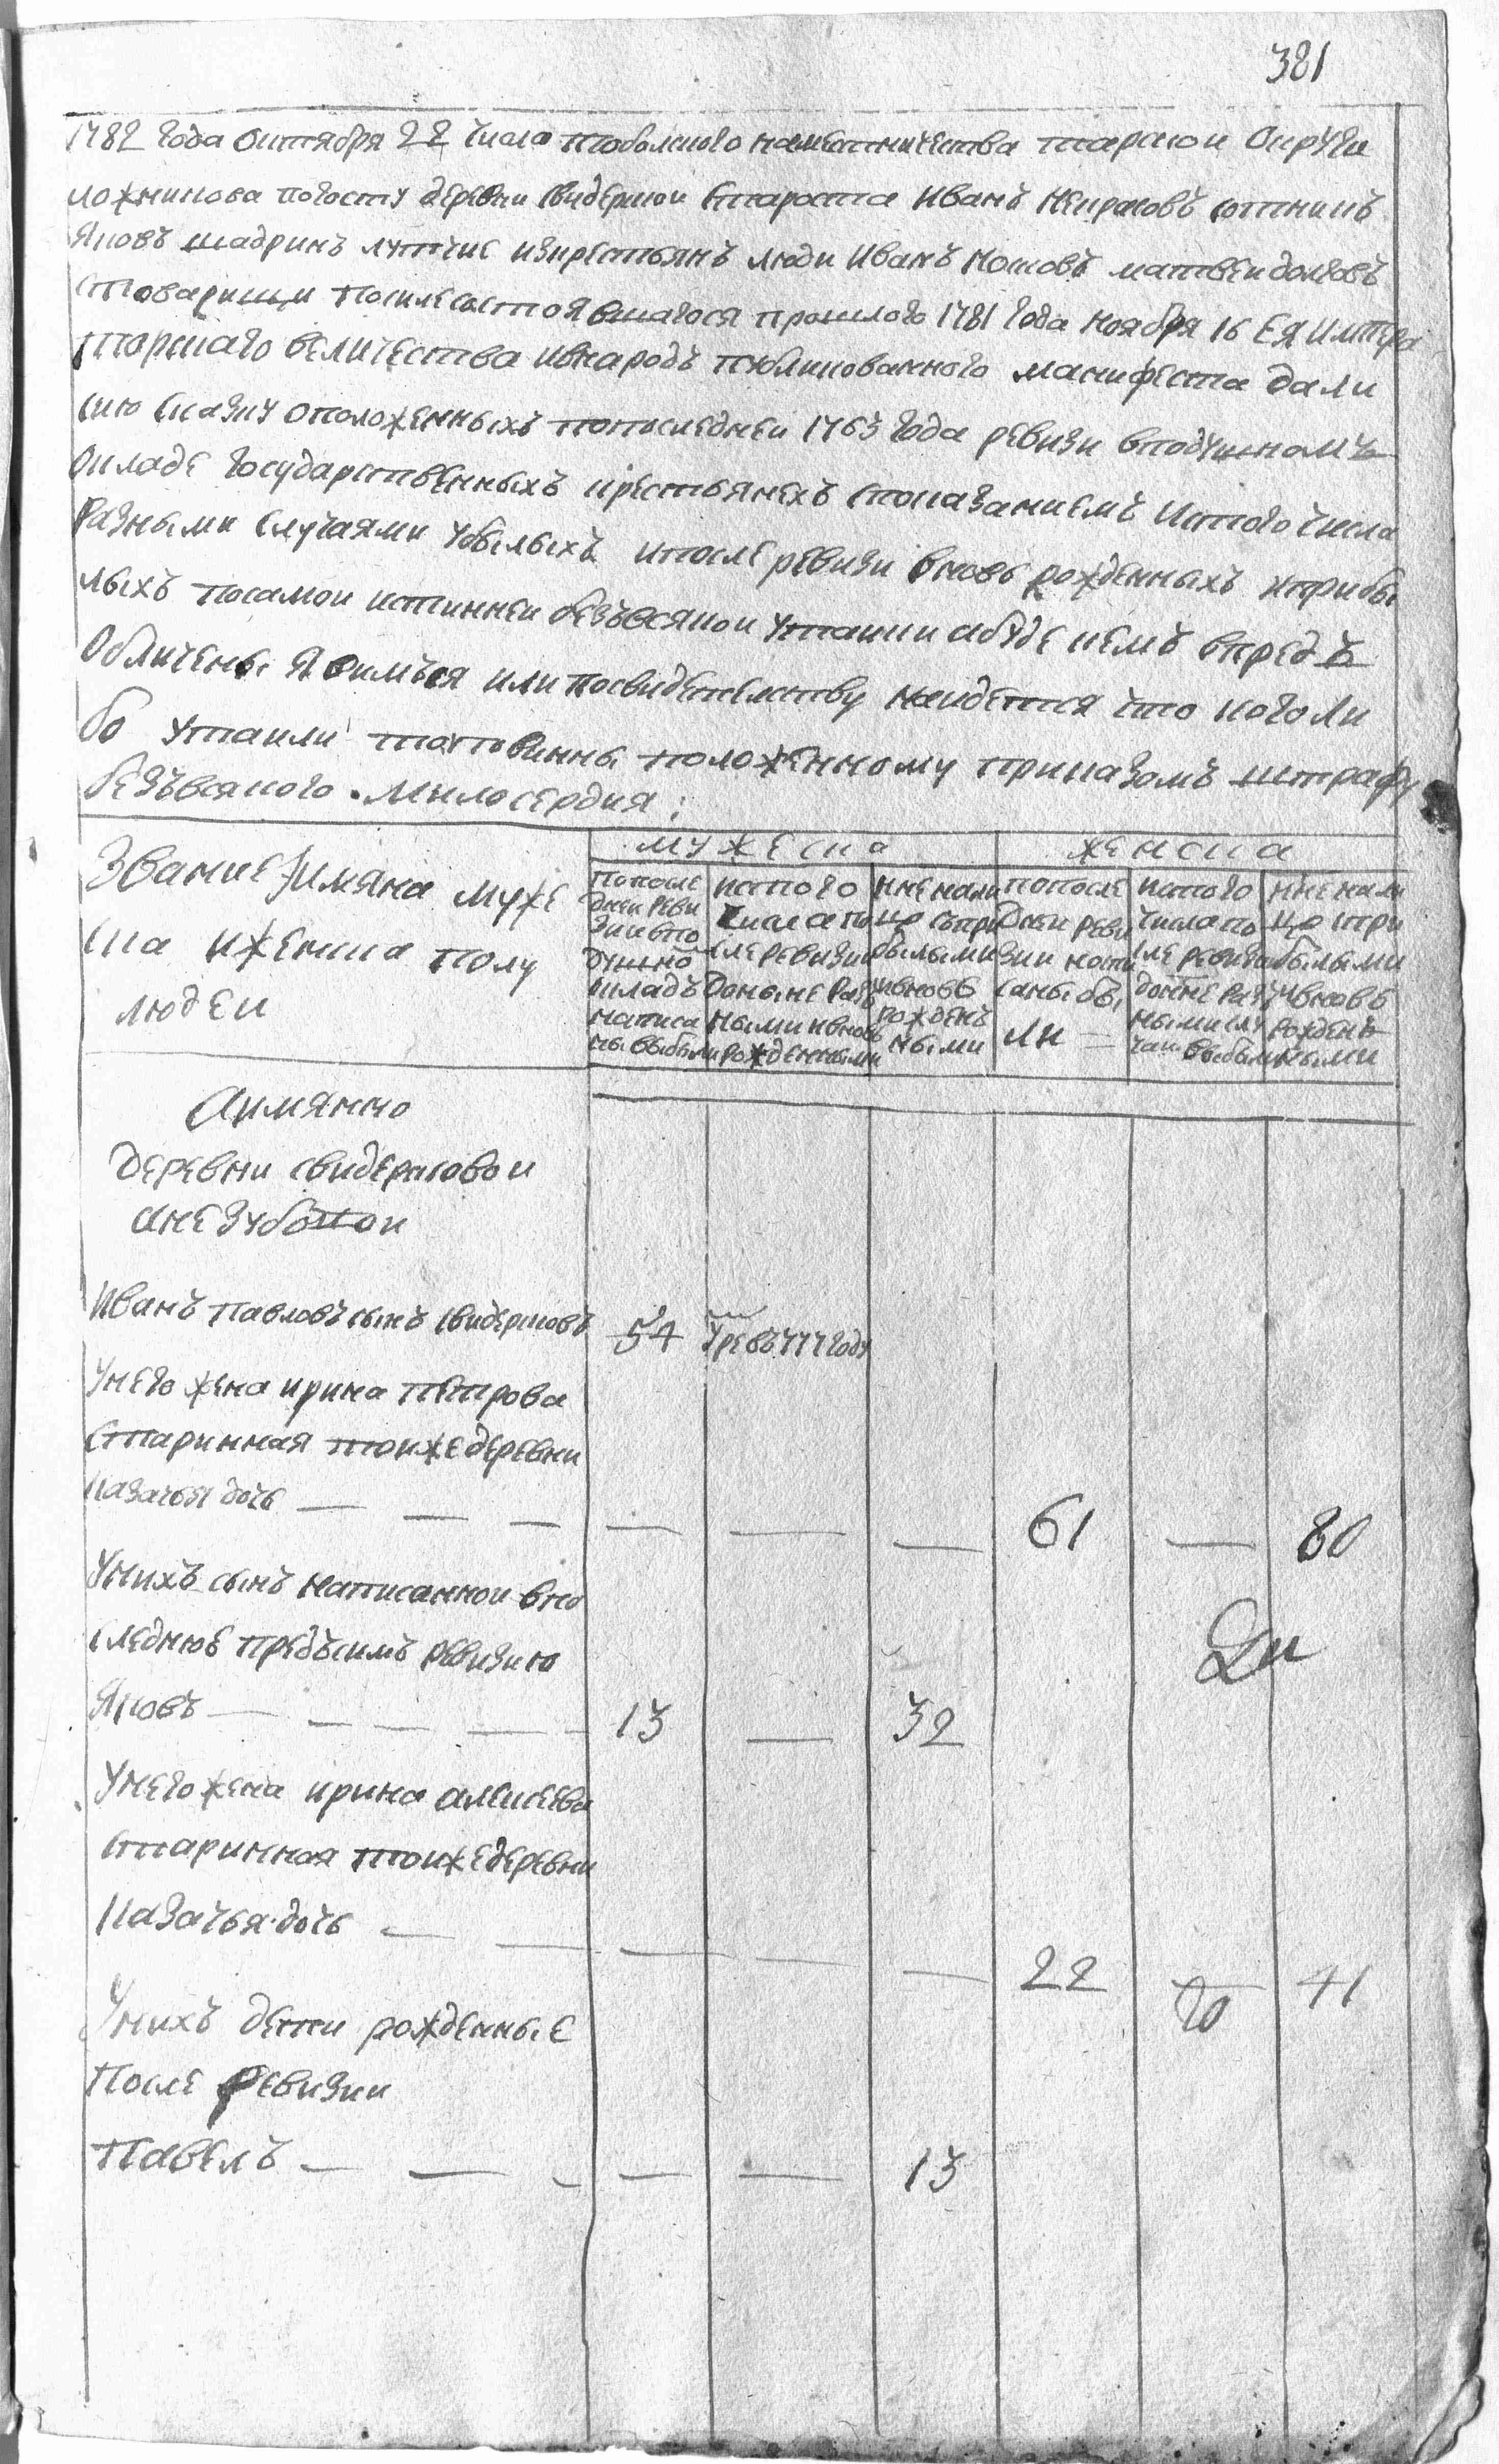 381
1782 года октября 22 числа тоболского наместничества тарскои округи
ложникова погосту деревни свидерскои староста Иванъ Некрасовъ сотникъ
Яковъ шадринъ лутчие искрестьянъ люди Иванъ матвеи долговъ
стоварищи посиле состоявшагося прошлого 1781 года ноября 16 ЕЯ импера
торскаго величества ивнародъ публикованного манифеста дали
сию скаску оположенныхъ попоследнеи 1763 года ревизи вподушномъ
окладе государственныхъ крестьянехъ спопазаниемъ истого числа
разными случаями убылыхъ ипосле ревизи вновь рожденныхъ иприбы
лыхъ посамои истиннеи безъвсякои утаики абуде кемъ впредъ
обличены явимъся или посвидетелству наидется что коголи
бо утаили топовинны положенному приказомъ штрафу
безъвсякого милосердия:
Звание Имяна муже
ска иженска полу
людеи
мужеска
женска
попосле
днеи реви
зии впо
душно
окладъ
написа
ны выбыли
истого
числа по
сле ревизии
доныне раз
ными ивновь
рожденными
ныне нали
цо спри
былыми
ивновь
рожденъ
ными
попосле
днеи реви
зии напи
саны бы
ли
истого
числа по
сле ревизи
доныне раз
ными слу
чаи выбыли
ныне нали
цо при
былыми
ивновь
рожденъ
ными
Аимянно
деревни свидерсковои
Иванъ павловъ сынъ свидерсковъ 54 умре въ 777 году
Унего жена ирина петрова
старинная тоижедеревни
казачья дочь 61 80
Унихъ сынъ написаннои впо
следнюе предъсимъ ревизию
Яковъ 13 32
Унего жена ирина алексеева
старинная тоижедеревни
казачья дочь 22 41
Унихъ дети рожденные
после ревизии
Павелъ 13